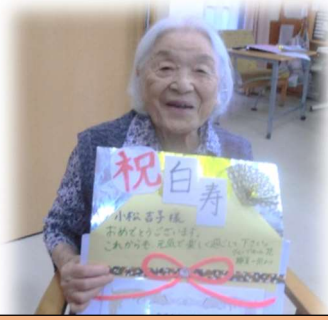 祝白寿
小松吉子様
おめでとうございます。
これからも元気で楽しく過ごして下さいね